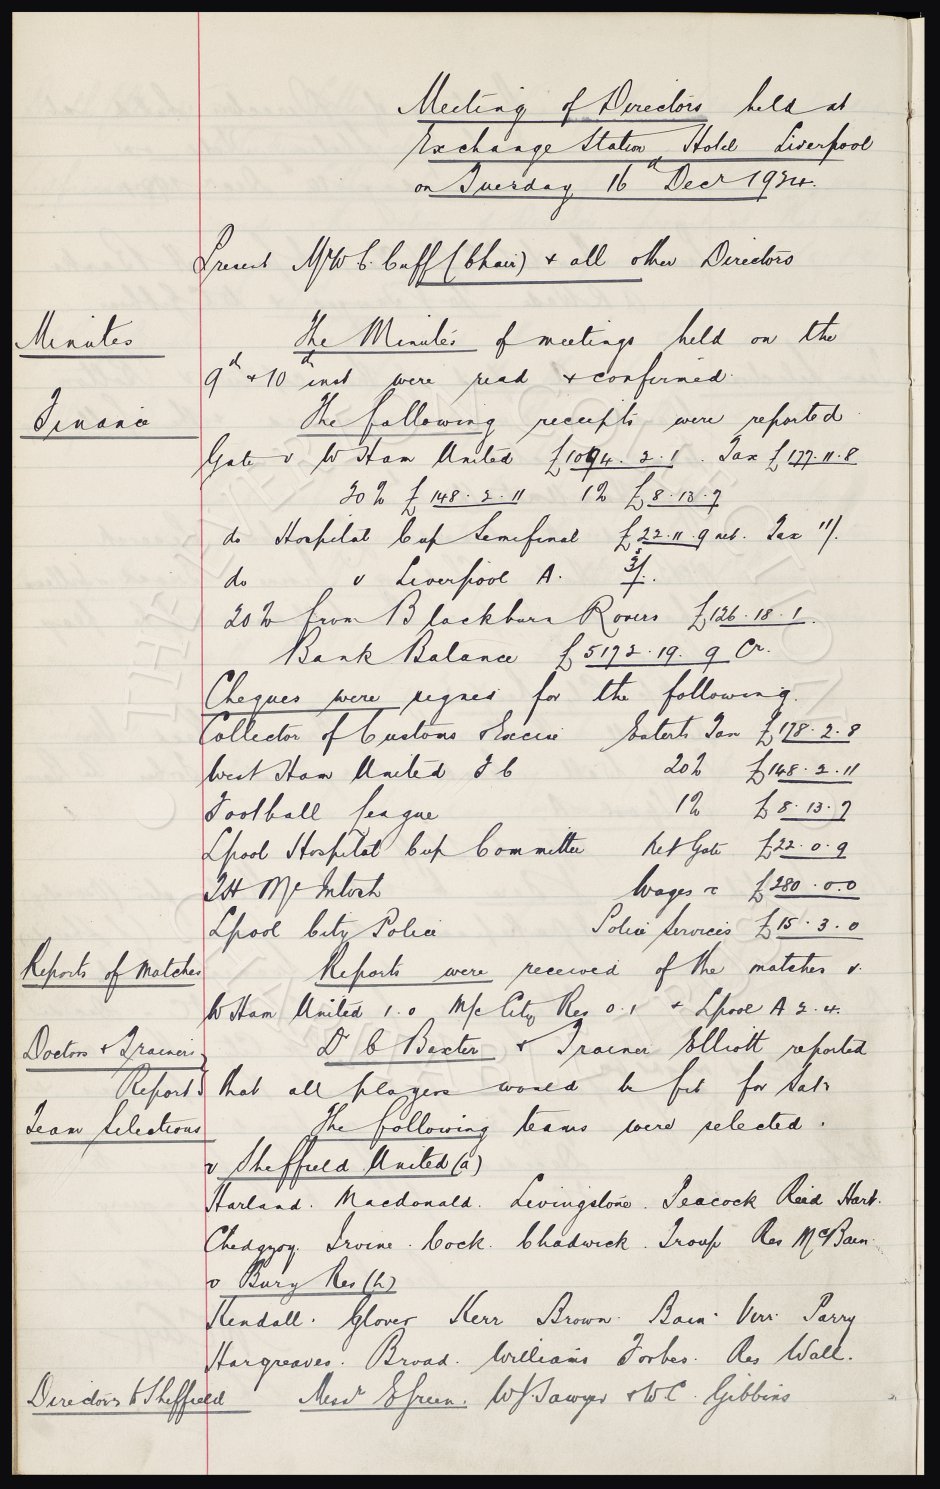 Meeting of Directors held at
Exchange Station Hotel Liverpool
on Tuesday 16th Decr 1924.
Present Mr W C Cuff (Chair) + all other Directors
Minutes The Minutes of meetings held on the
9th + 10th inst were read + confirmed.
Finance The following receipts were reported
Gate v W Ham United £1094. 2. 1. Tax £177. 11. 8
20% £148. 2. 11 1% £8. 13. 7
do Hospital Cup Semifinal £22. 11. 9 net. Tax 11/.
do v Liverpool A.
20% from Blackburn Rovers £126. 18. 1.
Bank Balance £5172. 19. 9 Cr.
Cheques were signed for the following.
Collector of Customs + Excise Entert. Tax £178. 2. 8
West Ham United F C 20% £148. 2. 11
Football League 1% £8. 13. 7
Lpool Hospital Cup Committee Net Gate £22. 0. 9
T H McIntosh Wages £280. 0. 0
Lpool City Police Police Services £15. 3. 0
Reports of Matches Reports were received of the matches v.
W Ham United 1. 0 M/c City Res 0. 1 + Lpool A 2. 4.
Doctors + Trainers Dr C Baxter + Trainer Elliott reported
Reports that all players would be fit for Satr
Team Selections The following teams were selected.
v Sheffield United (a)
Harland. Macdonald. Livingstone. Peacock Reid Hart.
Chedgzoy. Irvine. Cock. Chadwick. Troup Res McBain.
v Bury Res (h)
Kendall. Glover Kerr Brown. Bain. Virr. Parry
Hargreaves. Broad. Williams Forbes. Res Wall.
Directors to Sheffield Messrs E Green. W J Sawyer + W C Gibbins